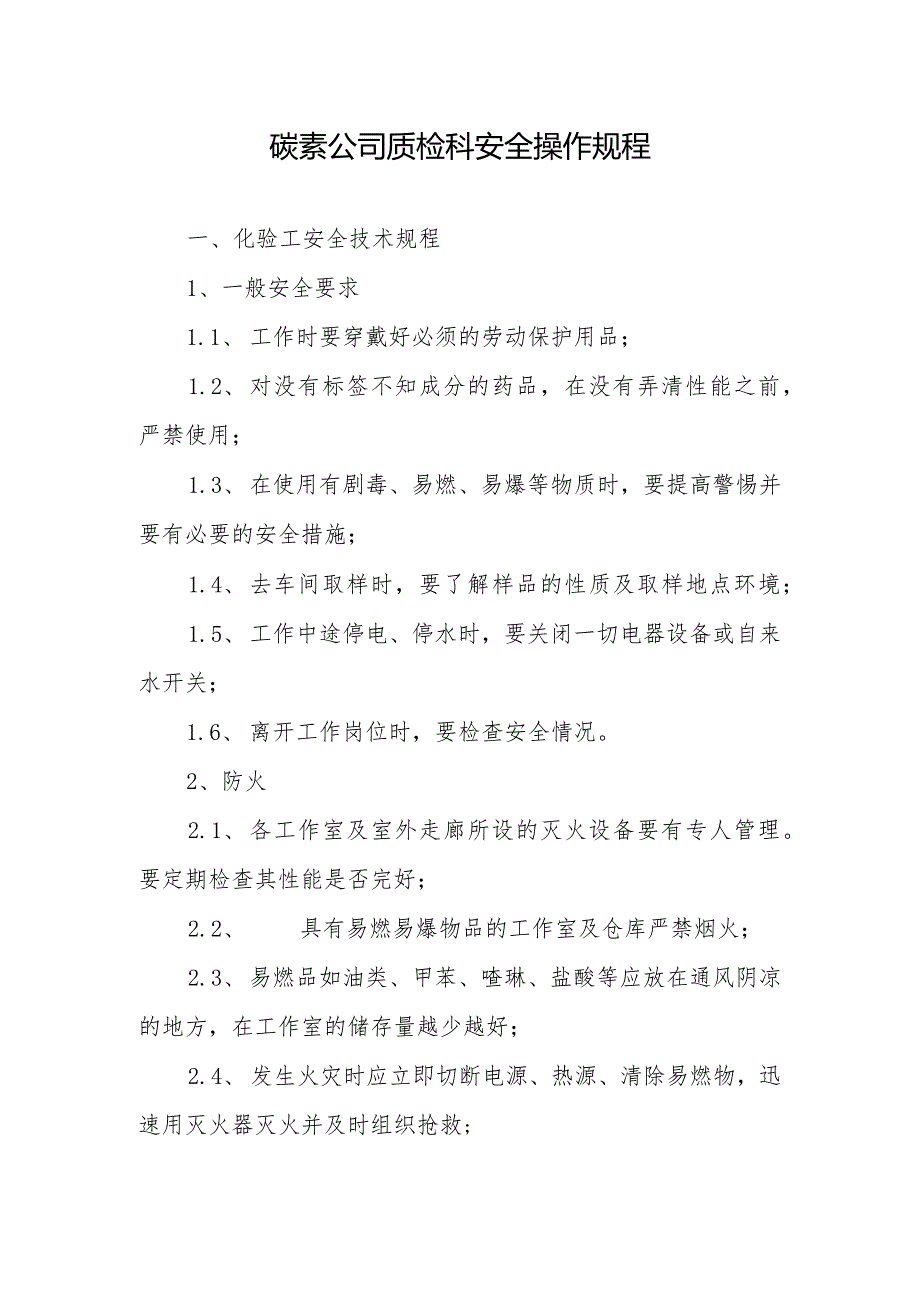 碳素公司质检科安全操作规程
一、化验工安全技术规程
1、一般安全要求
1.1、 工作时要穿戴好必须的劳动保护用品；
1.2、 对没有标签不知成分的药品，在没有弄清性能之前，
严禁使用；
1.3、 在使用有剧毒、易燃、易爆等物质时，要提高警惕并
要有必要的安全措施；
1.4、 去车间取样时，要了解样品的性质及取样地点环境；
1.5、 工作中途停电、停水时，要关闭一切电器设备或自来
水开关；
1.6、 离开工作岗位时，要检查安全情况。
2、防火
2.1、 各工作室及室外走廊所设的灭火设备要有专人管理。
要定期检查其性能是否完好；
2.2、 具有易燃易爆物品的工作室及仓库严禁烟火；
2.3、 易燃品如油类、甲苯、喳琳、盐酸等应放在通风阴凉
的地方，在工作室的储存量越少越好；
2.4、 发生火灾时应立即切断电源、热源、清除易燃物，迅
速用灭火器灭火并及时组织抢救;